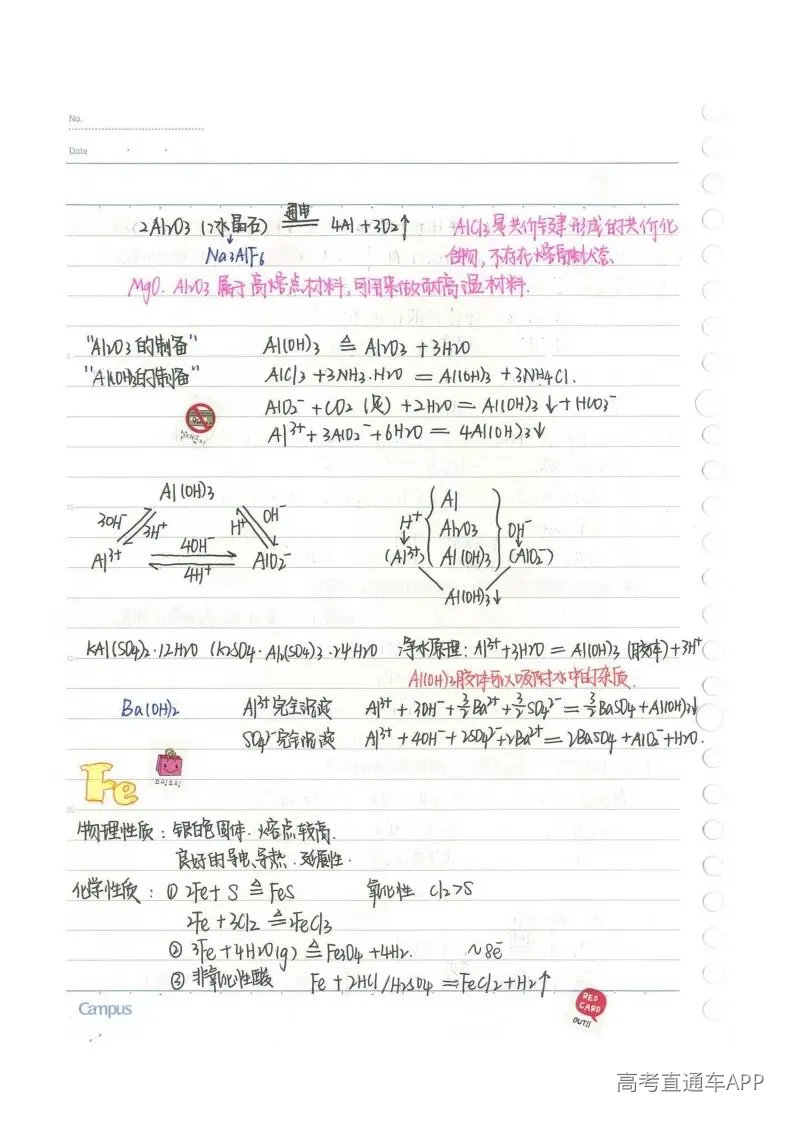 No.
Date
2Al2O3 (冰晶石) 通电 4Al + 3O2↑ AlCl3是共价键形成的共价化
Na3AlF6 合物, 不存在熔融状态
MgO. Al2O3 属于高熔点材料, 可用来做耐高温材料.
"Al2O3的制备" Al(OH)3 ≜ Al2O3 + 3H2O
"Al(OH)3的制备" AlCl3 + 3NH3·H2O = Al(OH)3 + 3NH4Cl.
AlO2⁻ + CO2 (足) + 2H2O = Al(OH)3↓ + HCO3⁻
Al³⁺ + 3AlO2⁻ + 6H2O = 4Al(OH)3↓
Al(OH)3 Al
3OH⁻ 3H⁺ H⁺ OH⁻ H⁺ Al2O3 OH⁻
Al³⁺ 4OH⁻ 4H⁺ AlO2⁻ (Al³⁺) Al(OH)3 (AlO2⁻)
Al(OH)3↓
KAl(SO4)2·12H2O (K2SO4·Al2(SO4)3·24H2O 净水原理: Al³⁺+3H2O = Al(OH)3 (胶体)+3H⁺
Al(OH)3胶体可以吸附水中的杂质.
Ba(OH)2 Al³⁺完全沉淀 Al³⁺ + 3OH⁻ + 3/2Ba²⁺ + 3/2SO4²⁻ = 3/2BaSO4 + Al(OH)3↓
SO4²⁻完全沉淀 Al³⁺ + 4OH⁻ + 2SO4²⁻ + 2Ba²⁺ = 2BaSO4 + AlO2⁻ + H2O.
Fe
物理性质: 银白色固体. 熔点较高.
良好的导电、导热. 延展性.
化学性质: ① 2Fe + S ≜ FeS 氧化性 Cl2>S
2Fe + 3Cl2 ≜ 2FeCl3
② 3Fe + 4H2O(g) ≜ Fe3O4 + 4H2. ~8e⁻
③ 非氧化性酸 Fe + 2HCl/H2SO4 = FeCl2 + H2↑
Campus
RED
CARD
OUT!!
高考直通车APP